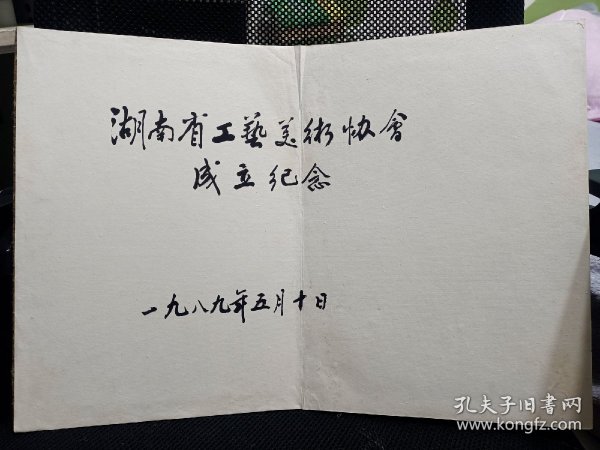 湖南省工藝美術协會
成立纪念
一九八九年五月十日
孔夫子旧書网
www.kongfz.com